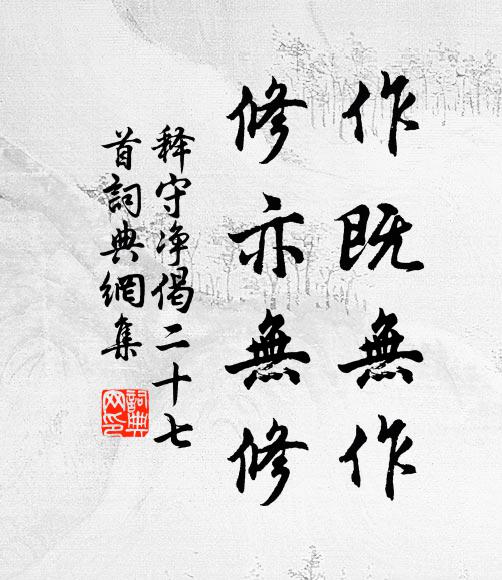 作既無作
修亦無修
释守净偈二十七
首詞典網集
詞典
网印